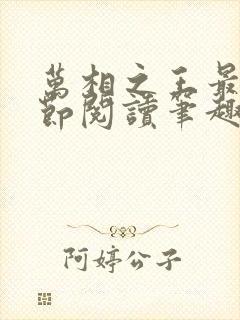 萬相之王最
節閱讀筆趣
阿婷公子